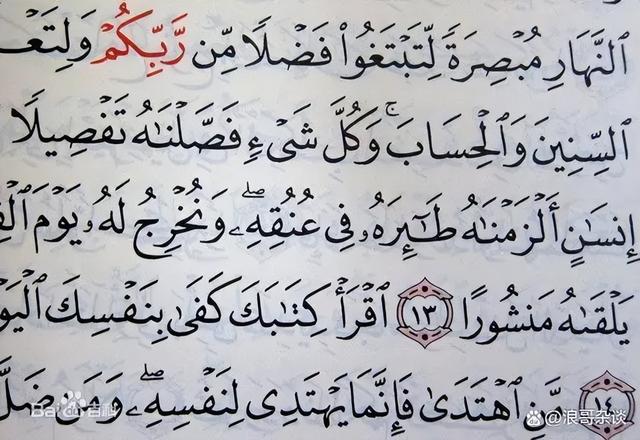 ٱلنَّهَارِ مُبْصِرَةً لِّتَبْتَغُواْ فَضْلًا مِّن رَّبِّكُمْ وَلِتَعْ
ٱلسِّنِينَ وَٱلْحِسَابَ ۚ وَكُلَّ شَىْءٍ فَصَّلْنَٰهُ تَفْصِيلًا
إِنسَٰنٍ أَلْزَمْنَٰهُ طَٰٓئِرَهُۥ فِى عُنُقِهِۦ ۖ وَنُخْرِجُ لَهُۥ يَوْمَ ٱلْقِ
يَلْقَىٰهُ مَنشُورًا ١٣ ٱقْرَأْ كِتَٰبَكَ كَفَىٰ بِنَفْسِكَ ٱلْيَوْ
١٤ مَّنِ ٱهْتَدَىٰ فَإِنَّمَا يَهْتَدِى لِنَفْسِهِۦ ۖ وَمَن ضَلَّ
Bai百科
@浪哥杂谈